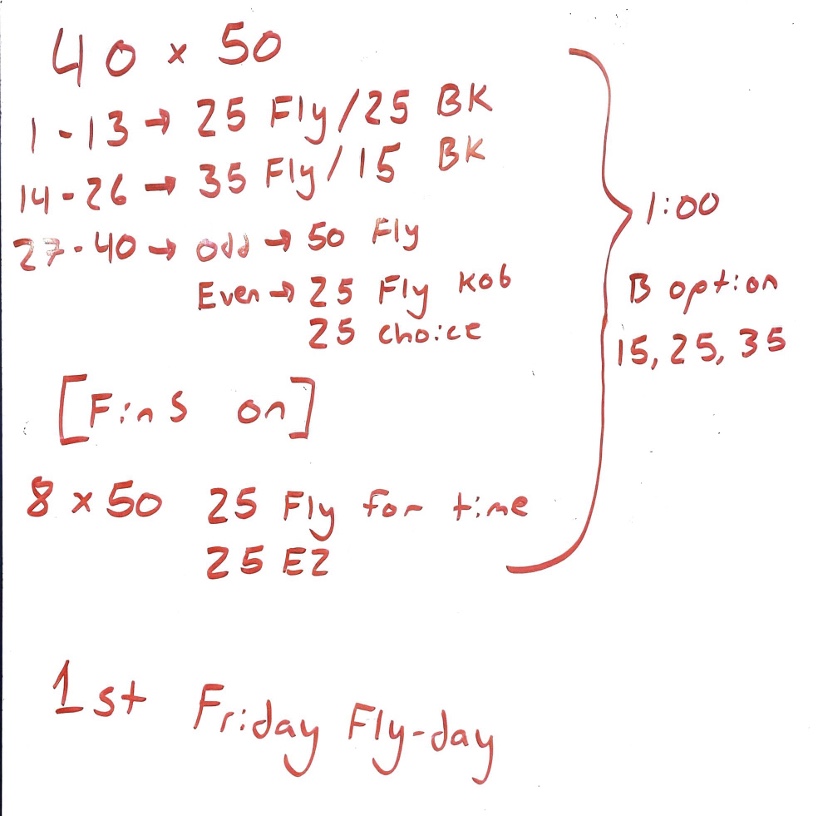 40 x 50
1-13 → 25 Fly/25 BK
14-26 → 35 Fly/15 BK
27-40 → odd → 50 Fly
Even → 25 Fly KOB
25 choice
[Fins on]
8 x 50 25 Fly for time
25 EZ
1:00
B option
15, 25, 35
1st Friday Fly-day